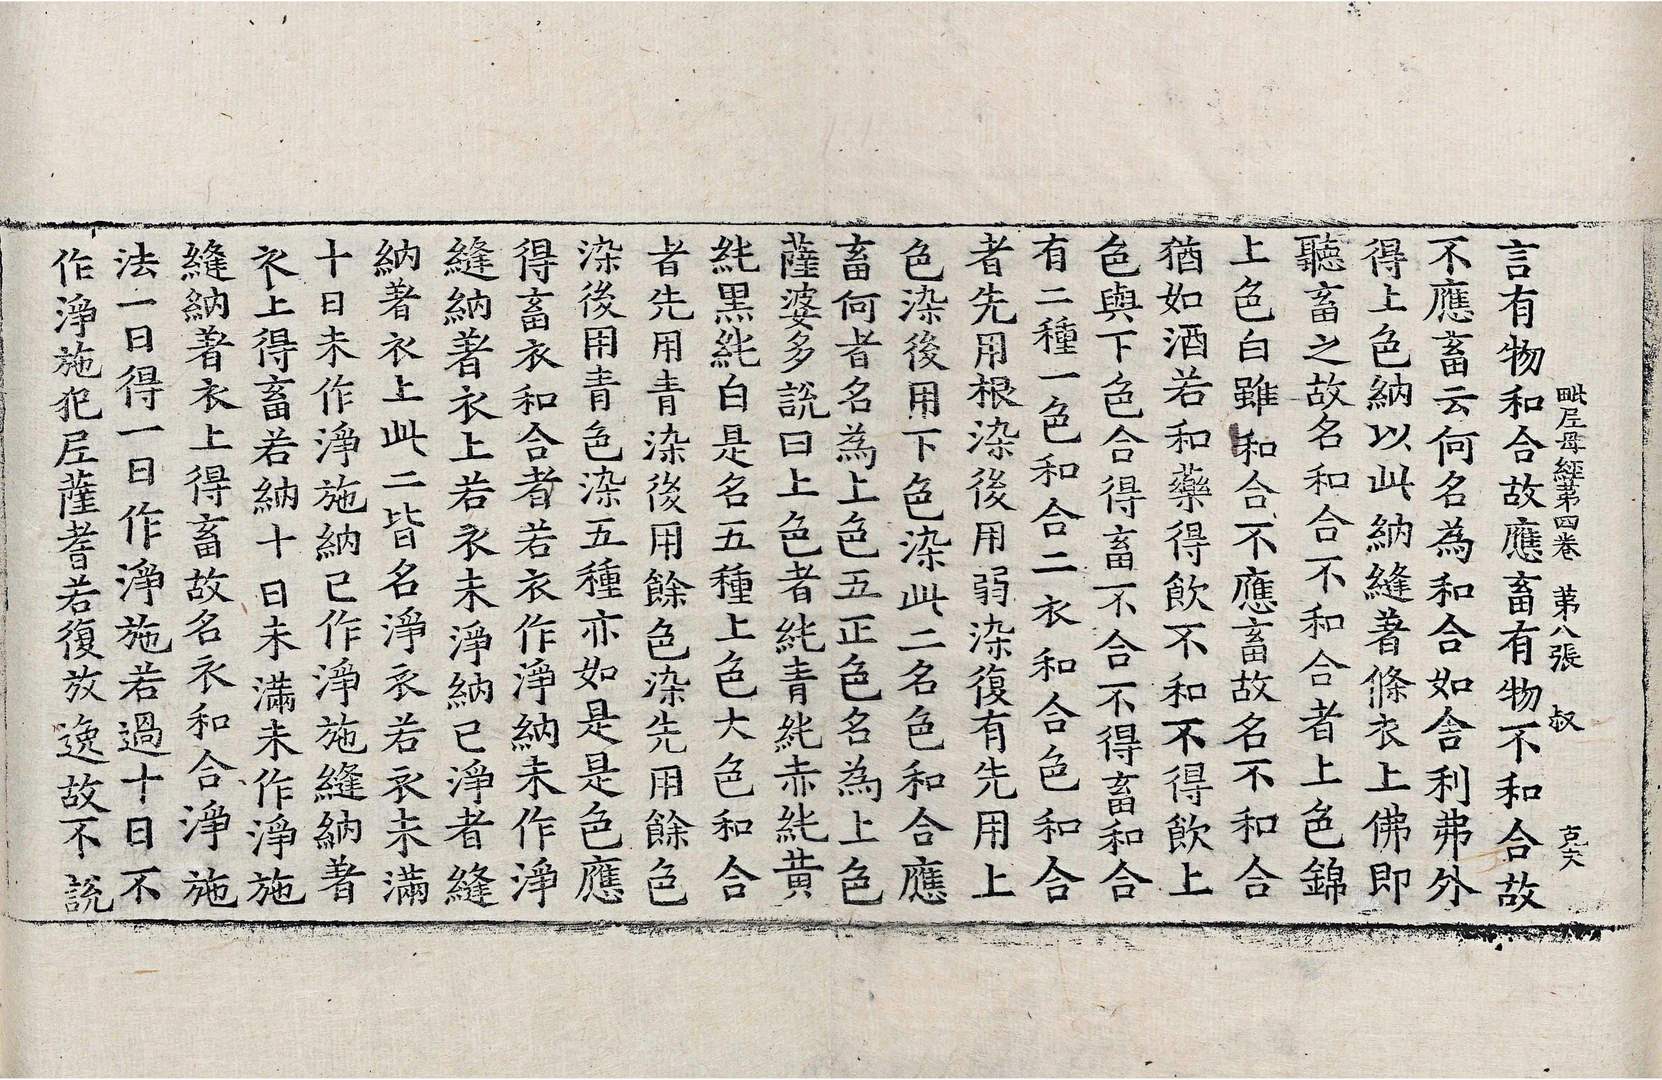 毗尼母經第四卷　第八張　叔　克文
言有物和合故應畜有物不和合故
不應畜云何名為和合如舍利弗外
得上色納以此納縫著條衣上佛即
聽畜之故名和合不和合者上色錦
上色白雖和合不應畜故名不和合
猶如酒若和藥得飲不和不得飲上
色與下色合得畜不合不得畜和合
有二種一色和合二衣和合色和合
者先用根染後用弱染復有先用上
色染後用下色染此二名色和合應
畜何者名為上色五正色名為上色
薩婆多說曰上色者純青純赤純黃
純黑純白是名五種上色大色和合
者先用青染後用餘色染先用餘色
染後用青色染五種亦如是是色應
得畜衣和合者若衣作淨納未作淨
縫納著衣上若衣未淨納已淨者縫
納著衣上此二皆名淨衣若衣未滿
十日未作淨施納已作淨施縫納著
衣上得畜若納十日未滿未作淨施
縫納著衣上得畜故名衣和合淨施
法一日得一日作淨施若過十日不
作淨施犯尼薩耆若復放逸故不說